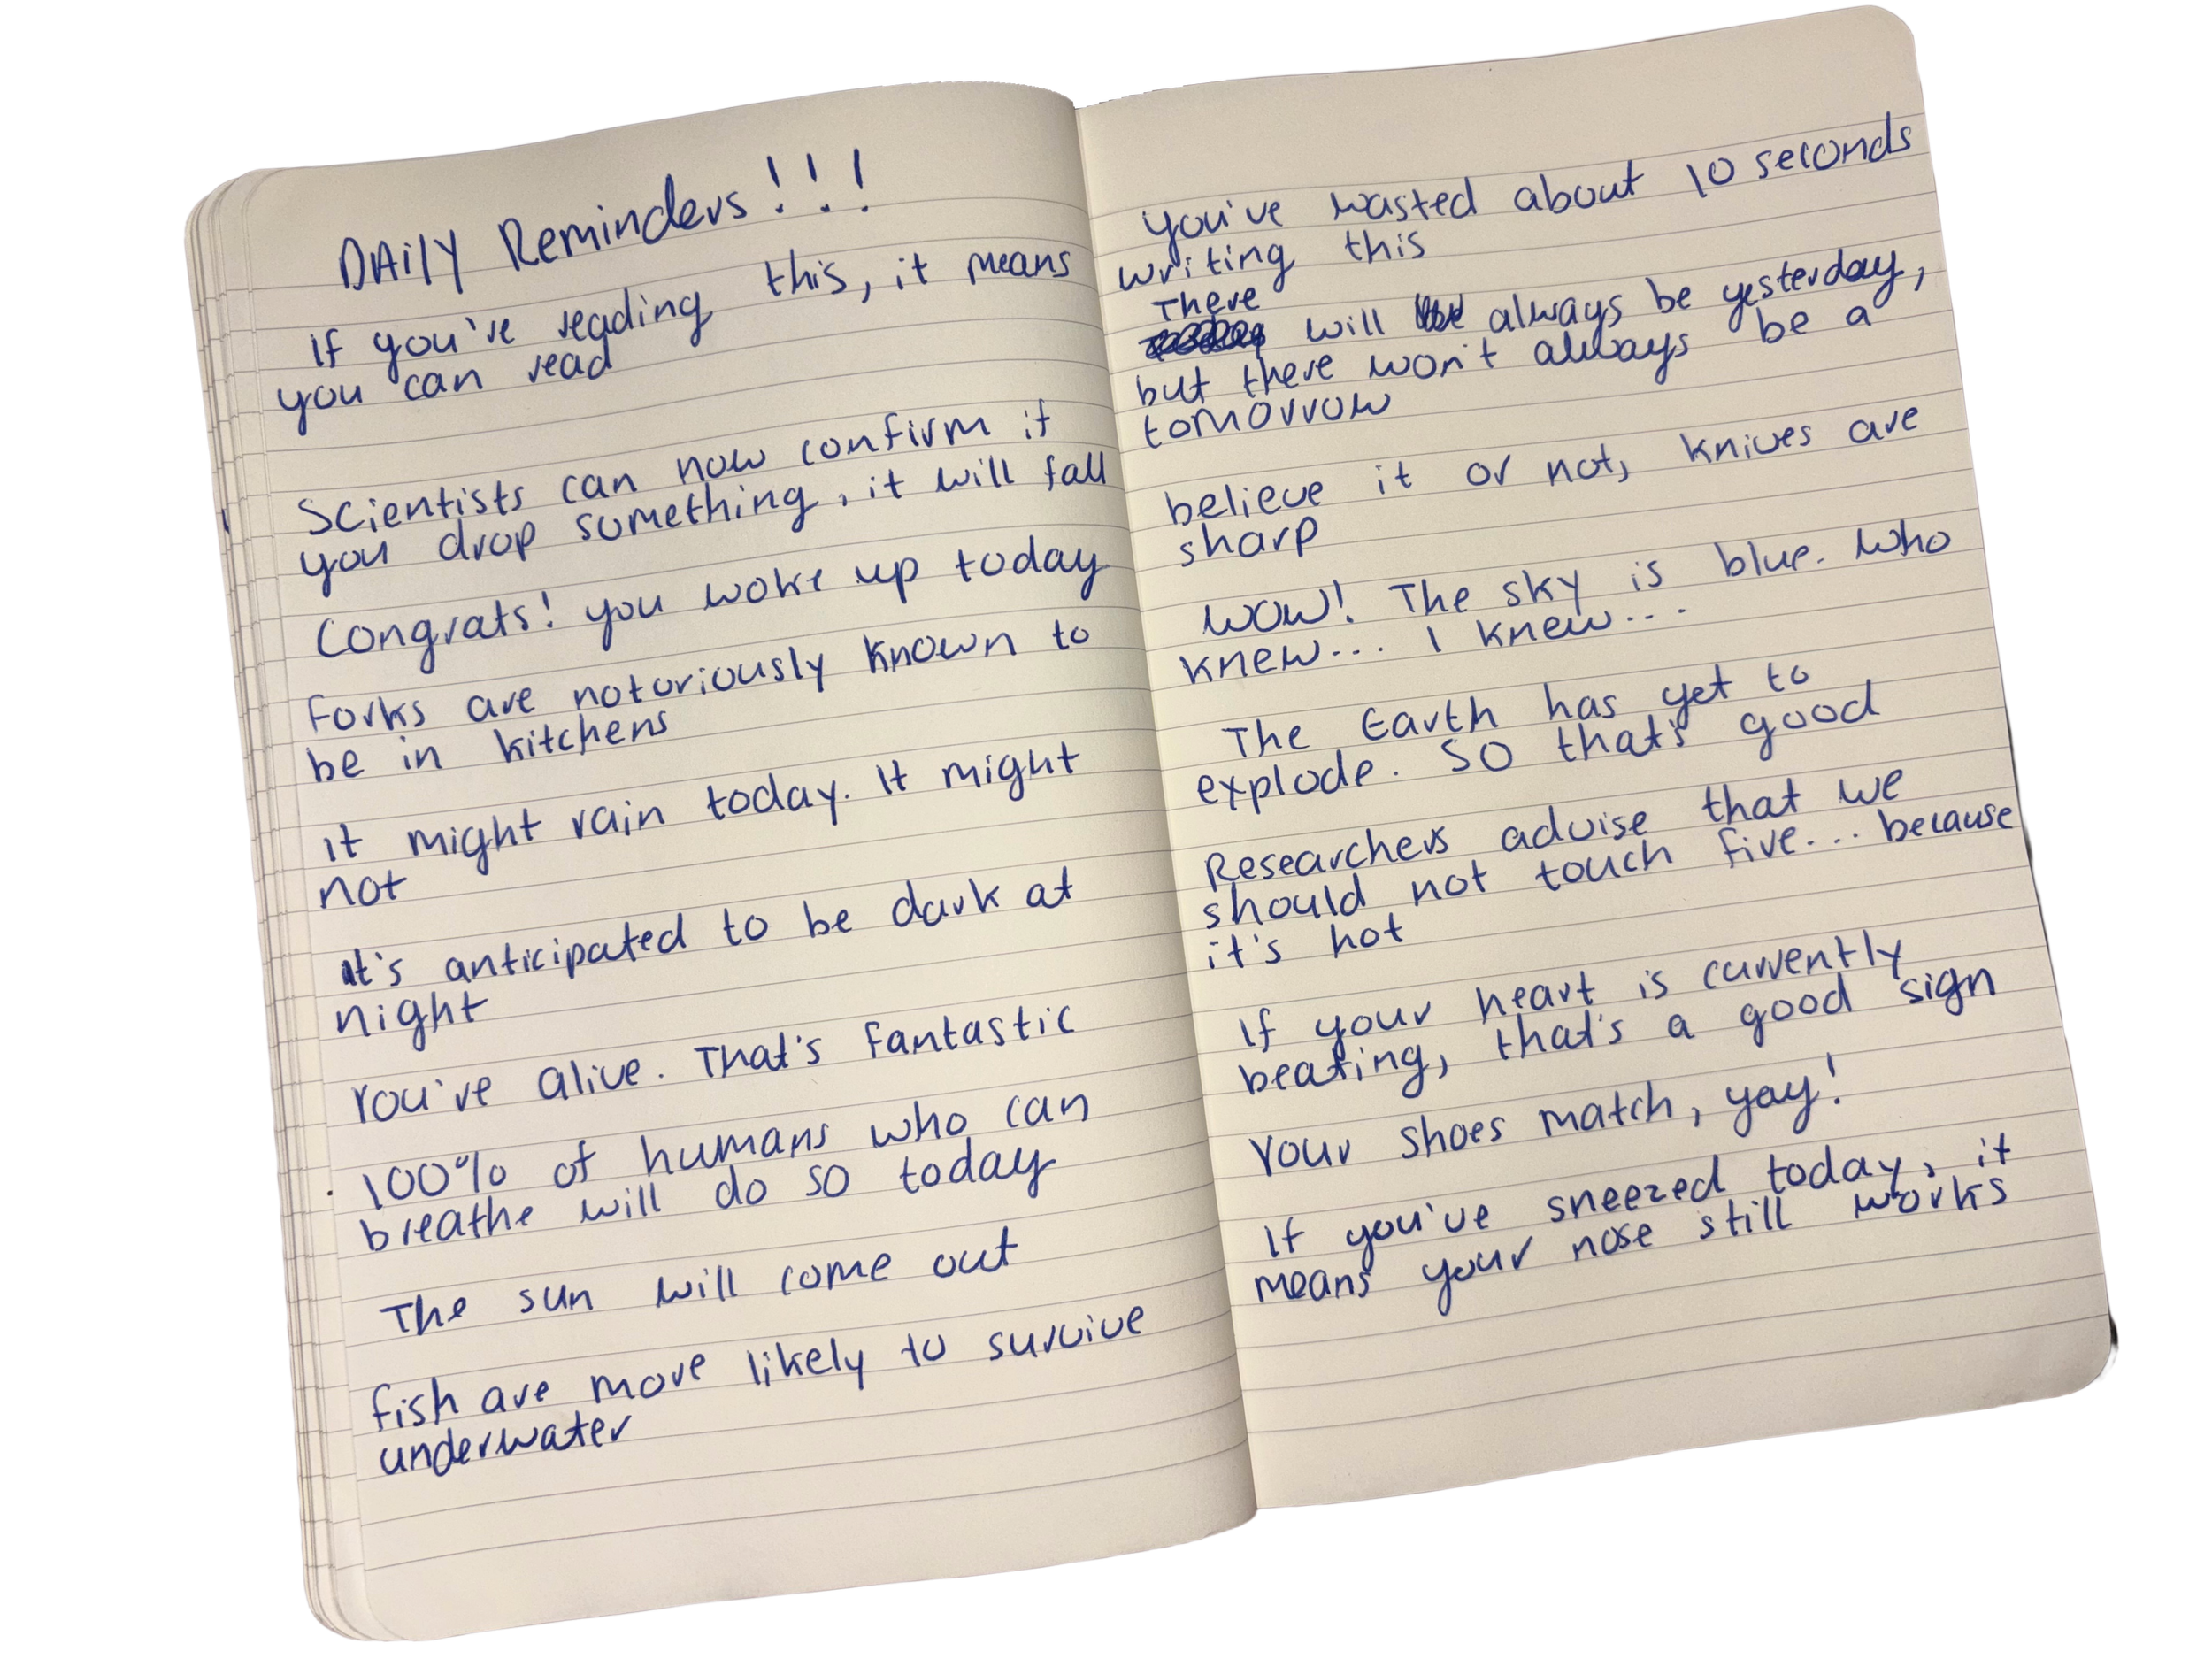 DAily Reminders!!!
If you're reading this, it means
you can read
Scientists can now confirm if
you drop something, it will fall
Congrats! you woke up today
Forks are notoriously known to
be in kitchens
It might rain today. It might
not
It's anticipated to be dark at
night
You're alive. That's fantastic
100% of humans who can
breathe will do so today
The sun will come out
fish are more likely to survive
underwater
you've wasted about 10 seconds
writing this
There
will always be yesterday,
but there won't always be a
tomorrow
believe it or not, knives are
sharp
WOW! The sky is blue. Who
knew... I knew...
The Earth has yet to
explode. So that's good
Researchers advise that we
should not touch fire... because
it's hot
If your heart is currently
beating, that's a good sign
Your shoes match, yay!
If you've sneezed today, it
means your nose still works